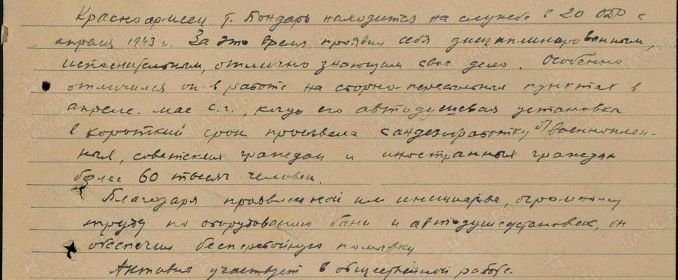 Красноармеец т. Бондарь находится на службе в 20 ОДР с
апреля 1943 г. За это время проявил себя дисциплинированным,
исполнительным, отлично знающим свое дело. Особенно
отличился он в работе на сборно-пересыльных пунктах в
апреле. мае с.г., когда его автодушевая установка
в короткий срок произвела сандезобработку военноплен-
ных, советских граждан и иностранных граждан
более 60 тысяч человек.
Благодаря проявленной им инициативе, огромному
труду по оборудованию бани и автодушустановок, он
обеспечил бесперебойную помывку.
Активно участвует в общественной работе.